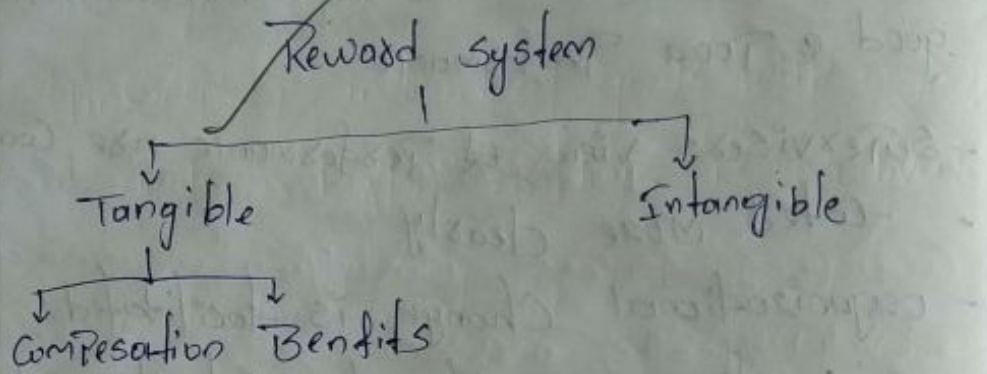 Reward system
Tangible Intangible
Compesation Benfits